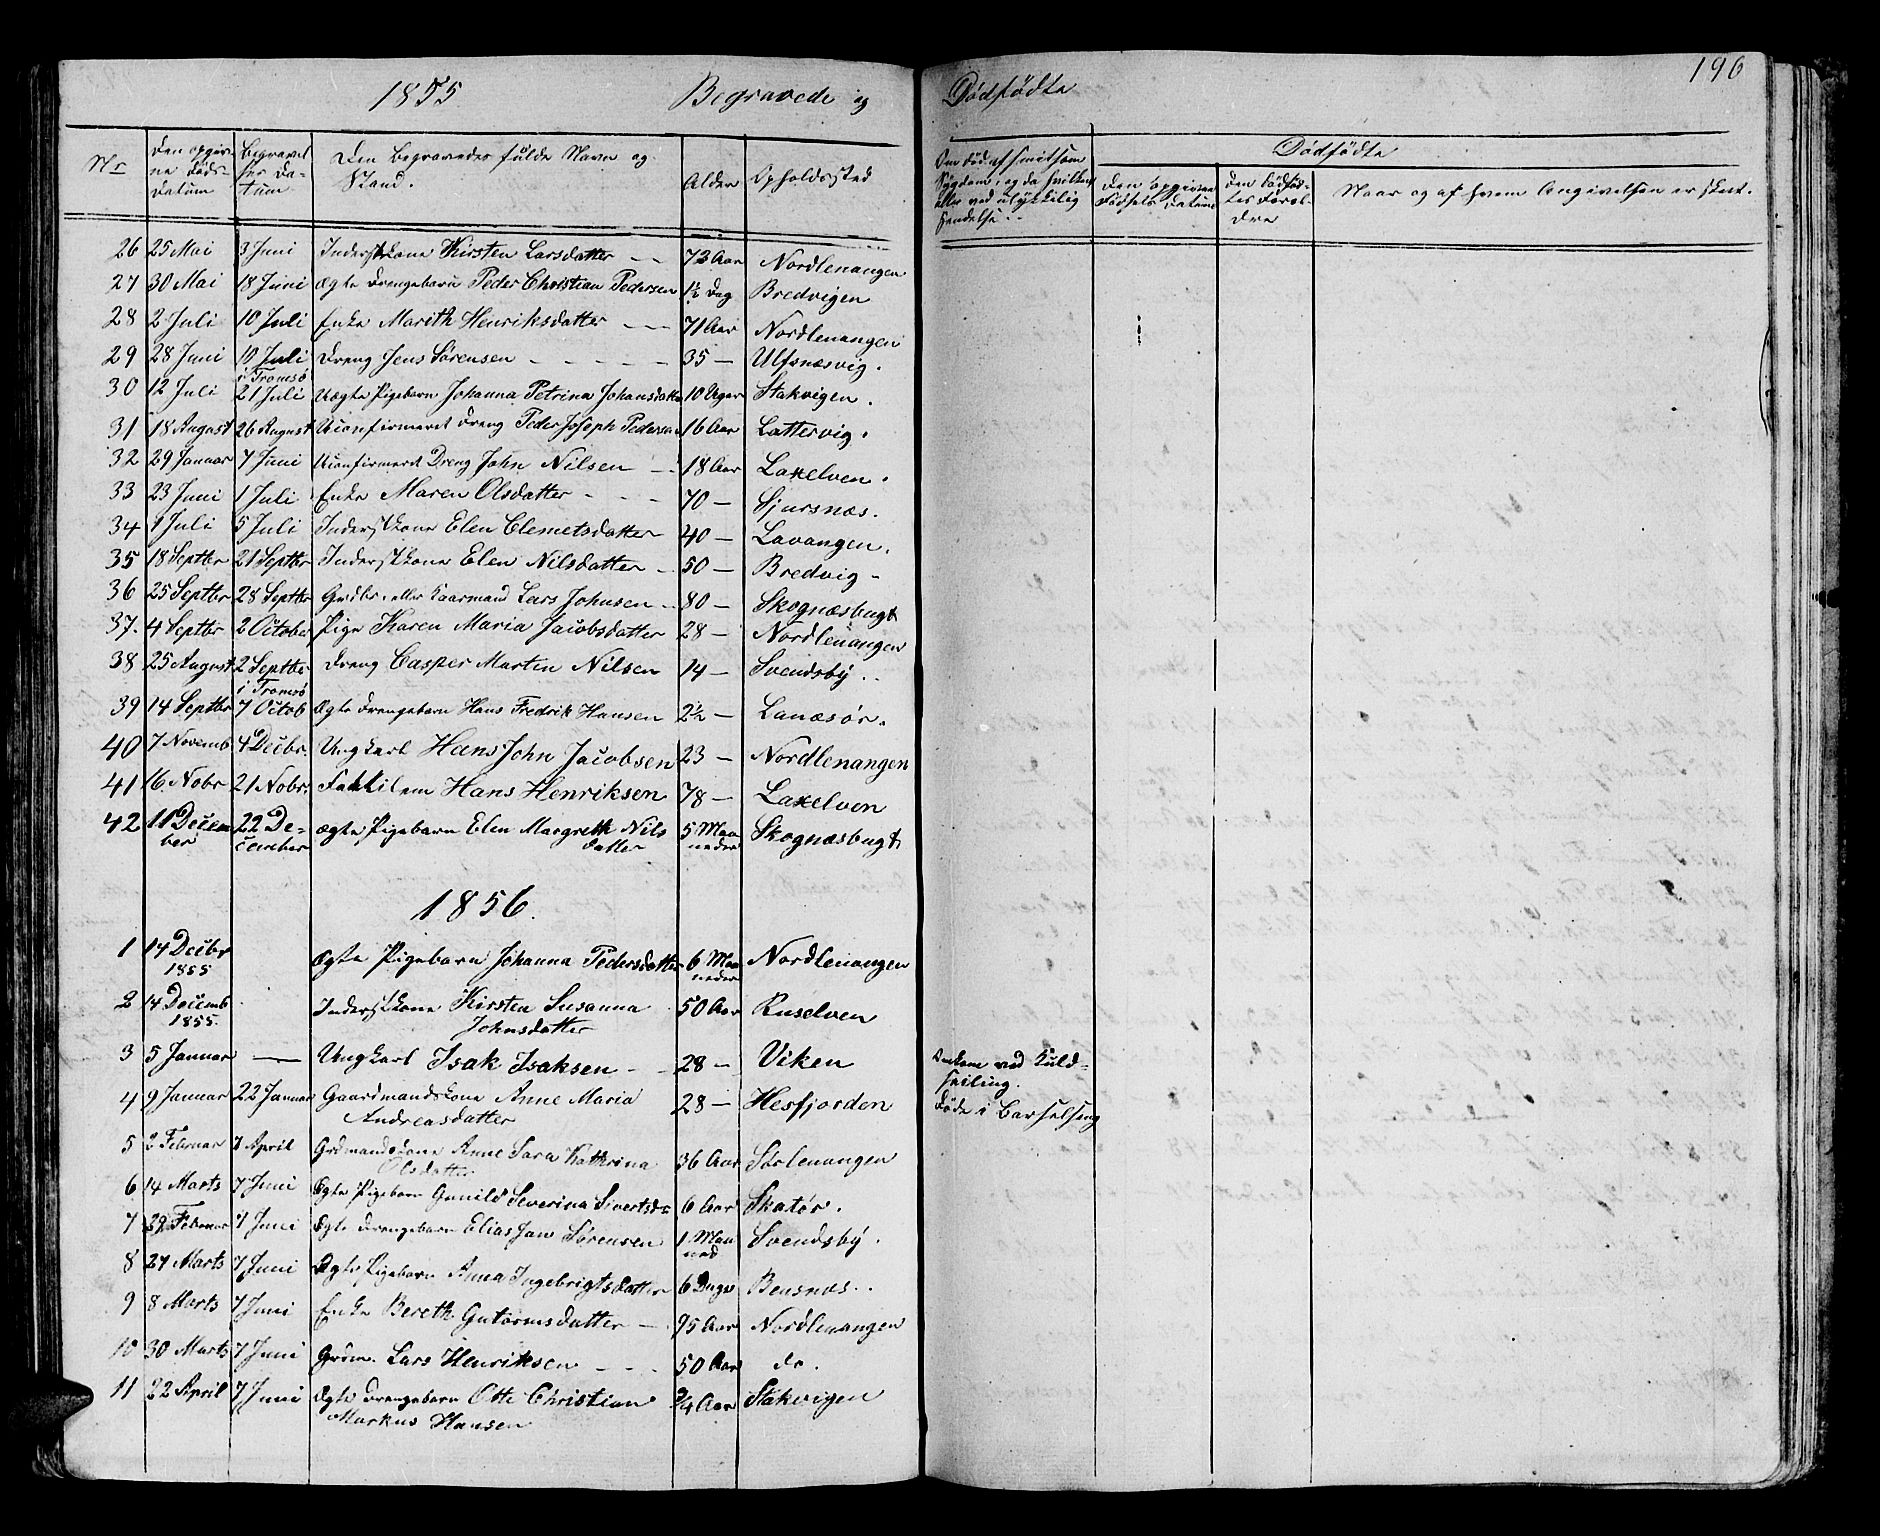 1855 Begravede og Dødfødte 196
Nr Den opgivne Døds-Datum Begravelses Datum Den Begravedes fulde Navn og Stand. Alder Opholdssted Om død af smitsom Sygdom, og da hvilken, eller ved ulykkelig Hendelse Dødfødte
Den opgivne Fødsels Datum Den Dødfødtes Forældre Naar og af hvem Angivelsen er skeet.
26 25 Mai 3 Juni Inderstkone Kirsten Larsdatter 72 Aar Nordlenangen
27 30 Mai 18 Juni Ægte Drengebarn Peder Christian Pedersen 1½ Dag Bredvigen
28 2 Juli 10 Juli Enke Marith Henriksdatter 71 Aar Nordlenangen
29 28 Juni 10 Juli i Tromsø Dreng Jens Sørensen 35 — Ulfsnæsvig.
30 12 Juli 21 Juli Uægte Pigebarn Johanna Petrina Johansdatter 10 Uger Stakvigen.
31 18 August 26 August Uconfirmeret Dreng Peder Joseph Pedersen 16 Aar Lattervig.
32 29 Januar 7 Juni Uconfirmeret Dreng John Nilsen 18 Aar Laxelven.
33 23 Juni 1 Juli Enke Maren Olsdatter 70 — Sjursnæs.
34 1 Juli 5 Juli Inderstkone Elen Clemetsdatter 40 — Lavangen.
35 18 Septbr 21 Septbr Inderstkone Elen Nilsdatter 50 — Bredvig
36 25 Septbr 28 Septbr Grdbr. eller Kaarmand Lars Johnsen 80 — Skognæsbugt
37. 4 Septbr 2 October Pige Karen Maria Jacobsdatter 28 — Nordlenangen
38 25 August 2 Septbr i Tromsø Dreng Casper Martin Nilsen 14 — Svendsby
39 14 Septbr 7 Octob Ægte Drengebarn Hans Fredrik Hansen 2½ — Lanæsør.
40 7 Novemb 4 Decbr. Ungkarl Hans John Jacobsen 23 — Nordlenangen
41 16 Nobr 21 Nobr. Fattiglem Hans Henriksen 78 — Laxelven
42 11 December 22 December Ægte Pigebarn Elen Margreth Nilsdatter 5 Maaneder Skognæsbugt
1856.
1 14 Decbr 1855 Ægte Pigebarn Johanna Pedersdatter 6 Maaneder Nordlenangen
2 14 Decemb 1855. Inderstkone Kirsten Susanna Johnsdatter 50 Aar Ruselven
3 5 Januar — Ungkarl Isak Isaksen 28 — Viken Omkom ved Kuldseiling.
4 9 Januar 22 Januar Gaardmandskone Anne Maria Andreasdatter 28 — Hesfjorden Døde i Barselseng
5 2 Februar 7 April Grdmandskone Anne Sara Kathrina Olsdatter 36 Aar Sørlenangen
6 14 Marts 7 Juni Ægte Pigebarn Gunild Severina Sivertsdr 6 Aar Skatør.
7 28 Februar 7 Juni Ægte Drengebarn Elias Jan Sørensen 1 Maaned Svendsby.
8 27 Marts 7 Juni Ægte Pigebarn Anna Ingebrigtsdatter 6 Dage Bensnæs..
9 8 Marts 7 Juni Enke Bereth Gutormsdatter 95 Aar Nordlenangen
10 30 Marts 7 Juni Grdm. Lars Henriksen 50 Aar do.
11 22 April 7 Juni Ægte Drengebarn Otte Christian Markus Hansen ¾ Aar Stakvigen